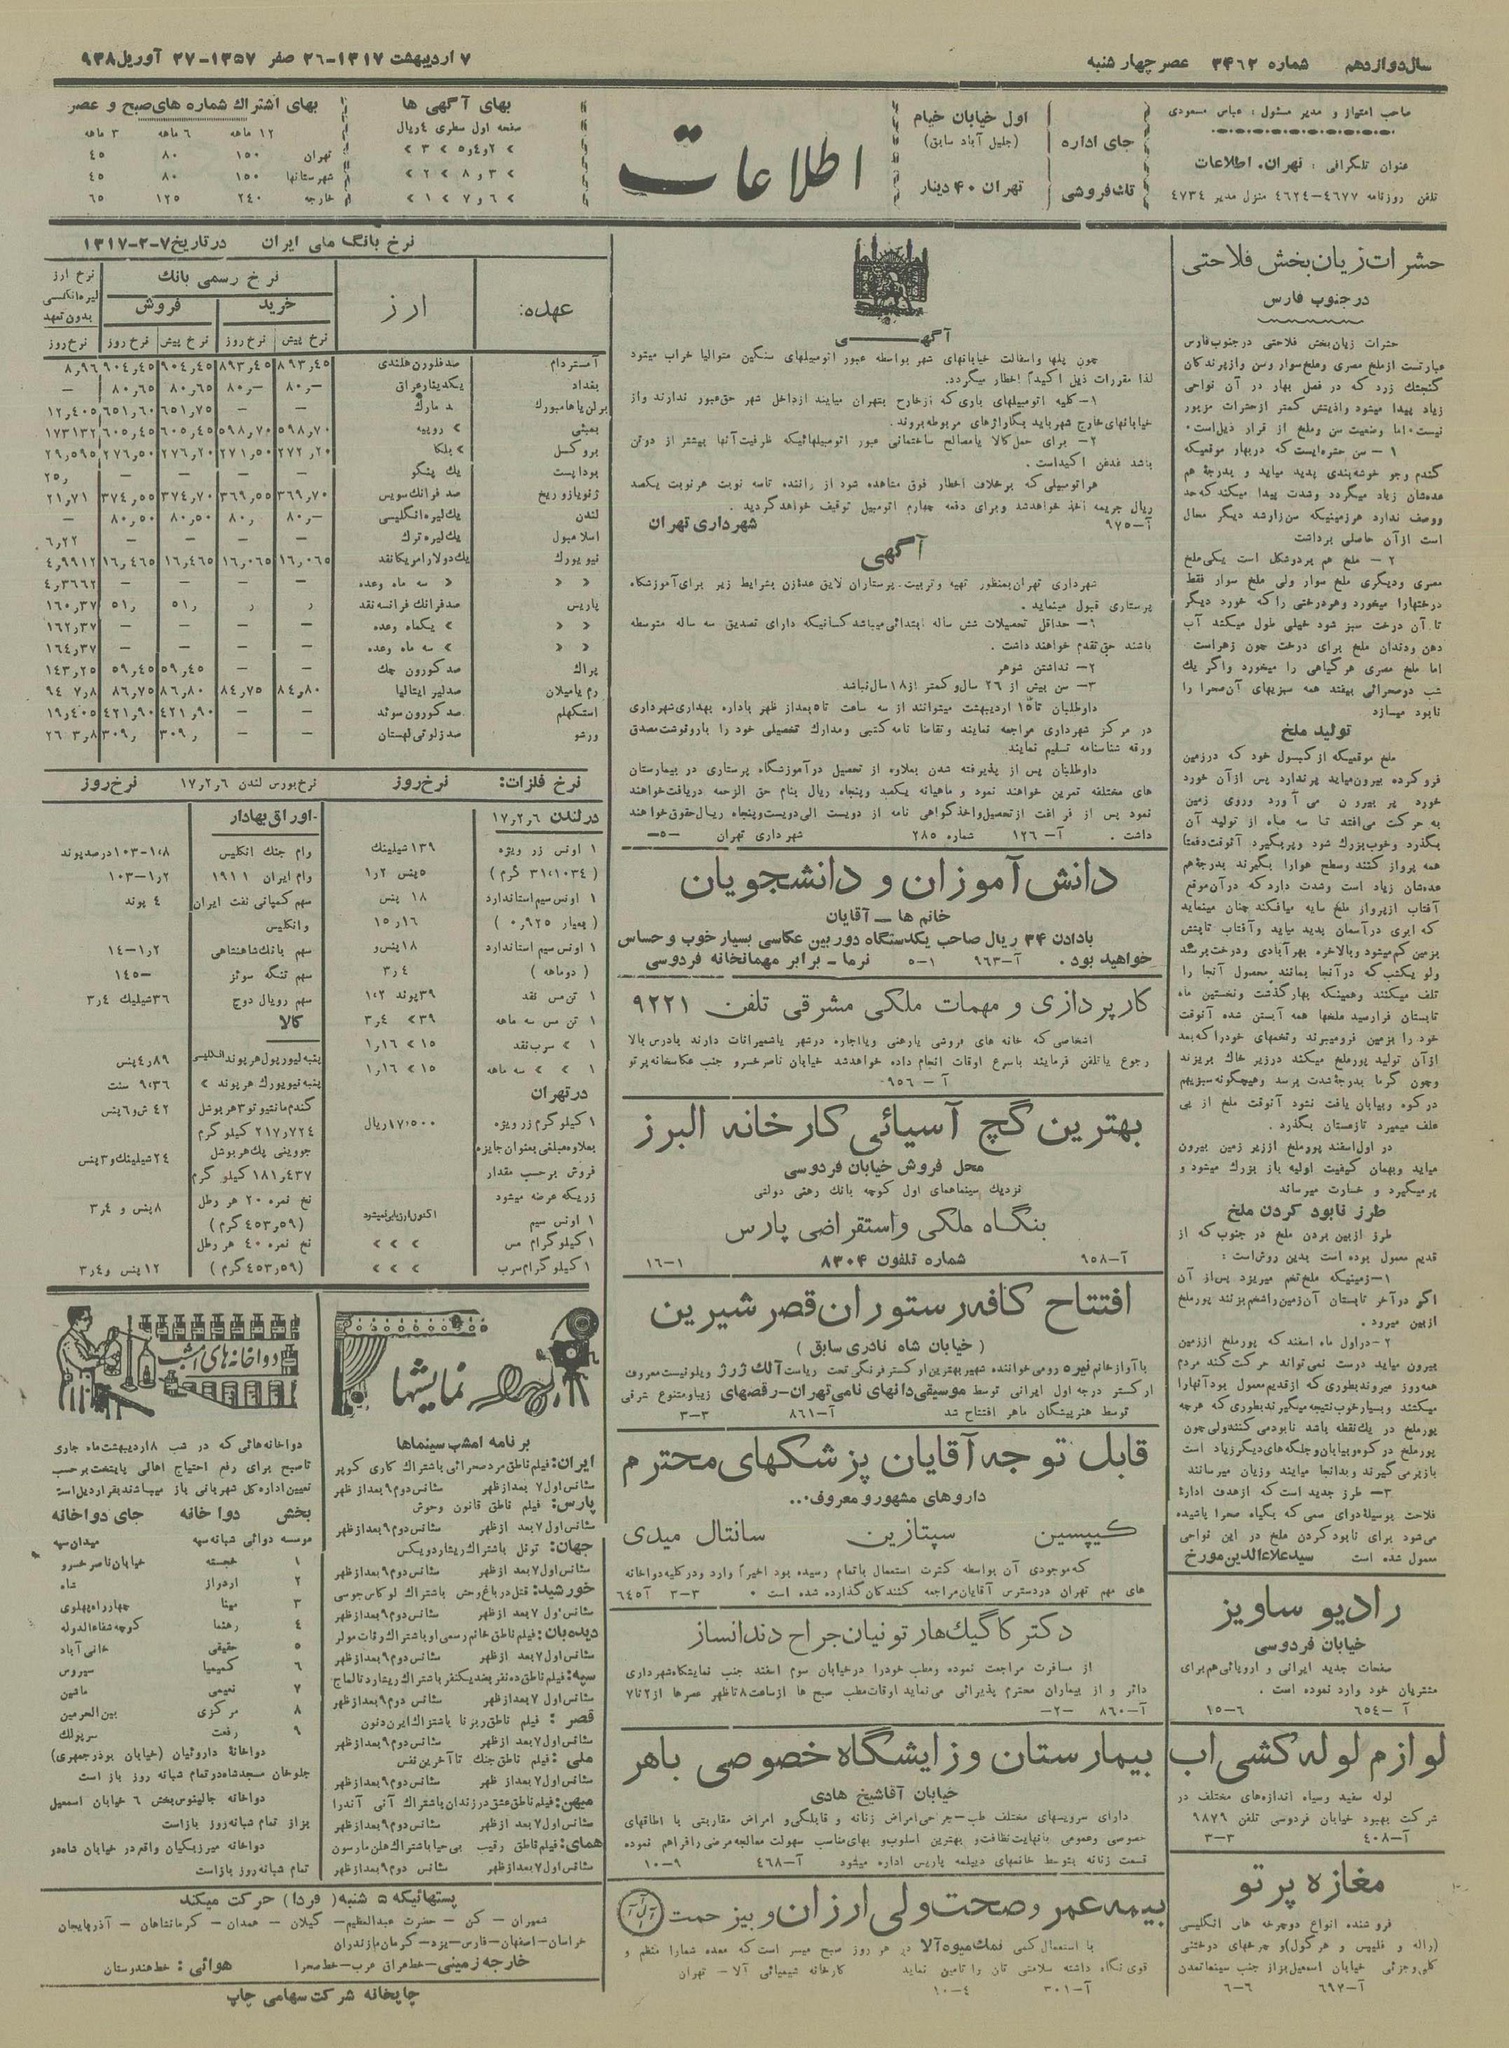 سال دوازدهم شماره ۳۴۶۲ عصر چهار شنبه
۷ اردیبهشت ۱۳۱۷-۲۶ صفر ۱۳۵۷-۲۷ آوریل ۹۳۸
صاحب امتیاز و مدیر مسئول : عباس مسعودی
عنوان تلگرافی : تهران. اطلاعات
تلفن روزنامه ۴۶۷۷-۴۶۲۴ منزل مدیر ۴۷۳۴
جای اداره
اول خیابان خیام
(جلیل آباد سابق)
تك فروشی
تهران ۴۰ دینار
اطلاعات
بهای آگهی ها
صفحه اول سطری ۴ ریال
بهای اشتراك شماره های صبح و عصر
۱۲ ماهه ۶ ماهه ۳ ماهه
تهران ۱۵۰ ۸۰ ۴۵
شهرستانها ۱۵۰ ۸۰ ۴۵
خارجه ۲۴۰ ۱۲۵ ۶۵
حشرات زیان بخش فلاحتی
در جنوب فارس
حشرات زیان بخش فلاحتی در جنوب فارس
عبارتست از ملخ مصری و ملخ سوار وسن و از پرندگان
گنجشك زرد که در فصل بهار در آن نواحی
زیاد پیدا میشود و اذیتش کمتر از حشرات مزبور
نیست۰ اما وضعیت سن و ملخ از قرار ذیل است۰
۱ - سن حشره ایست که در بهار موقعیکه
گندم وجو خوشه بندی پدید میاید و بدرجهٔ هم
عده شان زیاد میگردد وشدت پیدا میکند که حد
ووصف ندارد هر زمینیکه سن زارشد دیگر محال
است از آن حاصلی برداشت
۲ - ملخ هم بردوشکل است یکی ملخ
مصری ودیگری ملخ سوار ولی ملخ سوار فقط
درختهارا میخورد وهر درختی را که خورد دیگر
تا آن درخت سبز شود خیلی طول میکشد آب
دهن ودندان ملخ برای درخت چون زهر است
اما ملخ مصری هر گیاهی را میخورد واگر یك
شب در صحرائی بیفتد همه سبزیهای آن صحرا را
نابود میسازد
تولید ملخ
ملخ موقعیکه از کپسول خود که در زمین
فرو کرده بیرون میاید پر ندارد پس از آن خورد
خورد پر بیرون می آورد وروی زمین
به حرکت می افتد تا سه ماه از تولید آن
بگذرد وخوب بزرگ شود وپر بگیرد آنوقت دفعتا
همه پرواز کنند وسطح هوارا بگیرند بدرجهٔ هم
عده شان زیاد است وشدت دارد که در آن موقع
آفتاب از پرواز ملخ سایه میافکند چنان مینماید
که ابری در آسمان پدید میاید وآفتاب تابش
بزمین کم میشود وبالاخره بهر آبادی ودرخت برسند
ولو یکشب که در آنجا بمانند محصول آنجا را
تلف میکنند وهمینکه بهار گذشت ونخستین ماه
تابستان فرارسید ملخها همه آبستن شده آنوقت
خود را بزمین فرومیبرند وتخمهای خودرا که بعد
از آن تولید پور ملخ میکند در زیر خاك بریزند
وچون گرما بدرجهٔ شدت برسد وهیچگونه سبزیهم
در کوه وبیابان یافت نشود آنوقت ملخ از بی
علف میمیرد تا زمستان بگذرد .
در اول اسفند پور ملخ از زیر زمین بیرون
میاید وبهمان کیفیت اولیه باز بزرگ میشود و
پر میگیرد و خسارت میرساند
طرز نابود کردن ملخ
طرز از بین بردن ملخ در جنوب که از
قدیم معمول بوده است بدین روش است :
۱ - زمینیکه ملخ تخم میریزد پس از آن
اگر در آخر تابستان آن زمین را شخم بزنند پور ملخ
از بین میرود .
۲ - در اول ماه اسفند که پور ملخ از زمین
بیرون میاید درست نمی تواند حرکت کند مردم
همه روز میروند بطوری که از قدیم معمول بود آنهارا
میکشند و بسیار خوب نتیجه میگیرند بطوری که هرچه
پور ملخ در یك نقطه باشد نابود می کنند ولی چون
پور ملخ در کوه و بیابان و جلگه های دیگر زیاد است
باز پر می گیرند و بدانجا میایند و زیان میرسانند
۳ - طرز جدید است که از هدف ادارهٔ
فلاحت بوسیلهٔ دوای سمی که بگیاه صحرا پاشیده
می شود برای نابود کردن ملخ در این نواحی
معمول شده است سید علاءالدین مورخ
رادیو ساویز
خیابان فردوسی
صفحات جدید ایرانی و اروپائی هم برای
مشتریان خود وارد نموده است .
آ-۶۵۴ ۱۵-۶
لوازم لوله کشی اب
لوله سفید وسیاه اندازه های مختلف در
شرکت بهبود خیابان فردوسی تلفن ۹۸۷۹
آ-۴۰۸ ۳-۳
مغازه پرتو
فروشنده انواع دوچرخه های انگلیسی
(راله و فلیپس و هرکول)و چرخهای درشتی
کلی وجزئی خیابان اسمعیل بزاز جنب سینما تمدن
آ-۶۹۷ ۶-۶
آگهی
چون پلها واسفالت خیابانهای شهر بواسطه عبور اتومبیلهای سنگین متوالیا خراب میشود
لذا مقررات ذیل اکیداً اخطار میگردد.
۱- کلیه اتومبیلهای باری که از خارج بتهران میایند از داخل شهر حق عبور ندارند واز
خیابانهای خارج شهر باید بگاراژهای مربوطه بروند.
۲- برای حمل کالا یا مصالح ساختمانی عبور اتومبیلهائیکه ظرفیت آنها بیشتر از دو تن
باشد قدغن اکید است.
هر اتومبیلی که برخلاف اخطار فوق مشاهده شود از راننده تا سه نوبت هر نوبت یکصد
ریال جریمه اخذ خواهد شد و برای دفعه چهارم اتومبیل توقیف خواهد گردید .
آ-۹۷۵ شهرداری تهران
آگهی
شهرداری تهران بمنظور تهیه وتربیت پرستاران لایق عدهٔ زن بشرایط زیر برای آموزشگاه
پرستاری قبول مینماید .
۱- حداقل تحصیلات شش ساله ابتدائی میباشد کسانیکه دارای تصدیق سه ساله متوسطه
باشند حق تقدم خواهند داشت .
۲- نداشتن شوهر
۳- سن بیش از ۲۶ سال و کمتر از ۱۸ سال نباشد
داوطلبان تا ۱۵ اردیبهشت میتوانند از سه ساعت تا ۵ بعد از ظهر باداره بهداری شهرداری
در مرکز شهرداری مراجعه نمایند و تقاضا نامه کتبی ومدارك تحصیلی خود را با رونوشت مصدق
ورقه شناسنامه تسلیم نمایند
داوطلبان پس از پذیرفته شدن بعلاوه از تحصیل در آموزشگاه پرستاری در بیمارستان
های مختلفه تمرین خواهند نمود و ماهیانه یکصد وپنجاه ریال بنام حق الزحمه دریافت خواهند
نمود پس از فراغت از تحصیل واخذ گواهی نامه از دویست الی دویست وپنجاه ریال حقوق خواهند
داشت . آ-۱۲۶ شماره ۲۸۵ شهرداری تهران -۵-
دانش آموزان و دانشجویان
خانم ها - آقایان
بادادن ۳۴ ریال صاحب یکدستگاه دوربین عکاسی بسیار خوب و حساس
خواهید بود . آ-۹۶۳ ۵-۱ نرما - برابر مهمانخانه فردوسی
کارپردازی و مهمات ملکی مشرقی تلفن ۹۲۲۱
اشخاصی که خانه های فروشی یا رهنی ویا اجاره در شهر یا شمیرانات دارند بادرس بالا
رجوع یا تلفن فرمایند باسرع اوقات انجام داده خواهد شد خیابان ناصر خسرو جنب عکاسخانه پرتو
آ-۹۵۶
بهترین گچ آسیائی کارخانه البرز
محل فروش خیابان فردوسی
نزدیك سینماهمای اول کوچه بانك رهنی دولتی
بنگاه ملکی واستقراضی پارس
آ-۹۵۸ شماره تلفون ۸۳۰۴ ۱۶-۱
افتتاح کافه رستوران قصر شیرین
( خیابان شاه نادری سابق )
با آواز خانم نیره رومی خواننده شهیر بهترین ارکستر فرنگی تحت ریاست آلك ژرژ ویلونیست معروف
ارکستر درجه اول ایرانی توسط موسیقی دانهای نامی تهران-رقصهای زیبا و متنوع شرقی
توسط هنرپیشگان ماهر افتتاح شد آ-۸۶۱ ۳-۳
قابل توجه آقایان پزشکهای محترم
داروهای مشهور و معروف...
کیپسین سپتازین سانتال میدی
که موجودی آن بواسطه کثرت استعمال باتمام رسیده بود اخیراً وارد و در کلیه دواخانه
های مهم تهران در دسترس آقایان مراجعه کنندگان گذارده شده است ۰ ۳-۳ آ-۶۴۵
دکتر کاگیك هارتونیان جراح دندانساز
از مسافرت مراجعت نموده ومطب خودرا در خیابان سوم اسفند جنب نمایشگاه شهرداری
دائر و از بیماران محترم پذیرائی می نماید اوقات مطب صبح ها از ساعت ۸ تا ظهر عصرها از ۲ تا ۷
آ-۸۶۰ -۲-
بیمارستان وزایشگاه خصوصی باهر
خیابان آقاشیخ هادی
دارای سرویسهای مختلف طب-جراحی امراض زنانه و قابلگی و امراض مقاربتی با اطاقهای
خصوصی وعمومی بانهایت نظافت و بهترین اسلوب و بهای مناسب سهولت معالجه مرضی رافراهم نموده
قسمت زنانه بتوسط خانمهای دیپلمه پاریس اداره میشود آ-۴۶۸ ۱۰-۹
بیمه عمر و صحت ولی ارزان و بیز حمت
با استعمال کمی نمك میوه آلا در هر روز صبح میسر است که معده شمارا منظم و
قوی نگاه داشته سلامتی تان را تامین نماید کارخانه شیمیائی آلا - تهران
آ-۳۰۱ ۱۰-۴
نرخ بانك ملی ایران در تاریخ ۷-۲-۱۳۱۷
عهده: ارز نرخ رسمی بانك نرخ ارز لیره انگلیسی بدون تعهد
خرید فروش
نرخ پیش نرخ روز نرخ پیش نرخ روز نرخ روز
آمستردام صد فلورن هلندی ۸۹۳٫۴۵ ۸۹۳٫۴۵ ۹۰۴٫۴۵ ۹۰۴٫۴۵ ۸٫۹۶
بغداد یکدینار عراق ۸۰٫- ۸۰٫- ۸۰٫۶۵ ۸۰٫۶۵ -
برلن یا هامبورك صد مارك - - ۶۵۱٫۷۵ ۶۵۱٫۶۰ ۱۲٫۴۰۵
بمبئی » روپیه ۵۹۸٫۷۰ ۵۹۸٫۷۰ ۶۰۵٫۴۵ ۶۰۵٫۴۵ ۱۷۳۱۳۲
بروکسل » بلگا ۲۷۲٫۲۰ ۲۷۱٫۵۰ ۲۷۶٫۲۰ ۲۷۶٫۵۰ ۲۹٫۵۹۵
بوداپست یك پنگو ۲۵٫
ژنو یا زوریخ صد فرانك سویس ۳۶۹٫۷۰ ۳۶۹٫۵۵ ۳۷۴٫۷۰ ۳۷۴٫۵۵ ۲۱٫۷۱
لندن یك لیره انگلیسی ۸۰٫- ۸۰٫ ۸۰٫۵۰ ۸۰٫۵۰ -
اسلامبول یك لیره ترك - - - - ۶٫۲۲
نیویورك یك دولار امریکا نقد ۱۶٫۰۶۵ ۱۶٫۰۶۵ ۱۶٫۴۶۵ ۱۶٫۴۶۵ ۴٫۹۹۱۲
» » » سه ماه وعده - - - - ۴٫۳۶۶۲
پاریس صد فرانك فرانسه نقد ٫ ٫ ۵۱٫ ۵۱٫ ۱۶۰٫۳۷
» » » یکماه وعده - - - - ۱۶۲٫۳۷
» » » سه ماه وعده - - - - ۱۶۴٫۳۷
پراك صد کورون چك - - ۵۹٫۴۵ ۵۹٫۴۵ ۱۴۳٫۲۵
رم یا میلان صد لیر ایتالیا ۸۴٫۸۰ ۸۴٫۷۵ ۸۶٫۸۰ ۸۶٫۷۵ ۹۴ ۷٫۸
استکهلم صد کورون سوئد - - ۴۲۱٫۹۰ ۴۲۱٫۹۰ ۱۹٫۴۰۵
ورشو صد زلوتی لهستان - - ۳۰۹٫ ۳۰۹٫ ۲۶ ۳٫۸
نرخ فلزات: نرخ روز
در لندن ۱۷٫۲٫۶
۱ اونس زر ویژه ۱۳۹ شیلینك
( ۳۱٫۱۰۳۴ گرم ) ۵ پنس ۱٫۲
۱ اونس سیم استاندارد ۱۸ پنس
( بعیار ۰٫۹۲۵ ) ۱۵٫۱۶
۱ اونس سیم استاندارد ۱۸ پنس و
( دوماهه ) ۳٫۴
۱ تن مس نقد ۳۹ پوند ۱٫۲
۱ تن مس سه ماهه ۳۹ » ۳٫۴
۱ » سرب نقد ۱۵ » ۱٫۱۶
۱ » » سه ماهه ۱۵ » ۱٫۱۶
در تهران
۱ کیلو گرم زر ویژه ۱۷٫۵۰۰ ریال
بعلاوه مبلغی بعنوان جایزه
فروش بر حسب مقدار
زریکه عرضه میشود
۱ اونس سیم اکنون ارزیابی نمیشود
۱ کیلو گرام مس » » »
۱ کیلو گرام سرب » » »
نرخ بورس لندن ۱۷٫۲٫۶ نرخ روز
اوراق بهادار
وام جنك انگلیس ۱۰۳-۱٫۸ درصد پوند
وام ایران ۱۹۱۱ ۱۰۳-۱٫۲
سهم کمپانی نفت ایران و انگلیس ۴ پوند
سهم بانك شاهنشاهی ۱۴-۱٫۲
سهم تنگه سوئز ۱۴۵-
سهم رویال دوچ ۳۶ شیلیك ۳٫۴
کالا
پنبه لیورپول هر پوند انگلیسی ۴٫۸۹ پنس
پنبه نیویورك هر پوند » ۹٫۳۶ سنت
گندم مانتیو تو ۳ هر بوشل ۴۲ ش و ۶ پنس
۲۱۷٫۷۲۴ کیلو گرم
جو وینی پك هر بوشل ۲۴ شیلینك و ۳ پنس
۱۸۱٫۴۳۷ کیلو گرم
نخ نمره ۲۰ هر رطل ۸ پنس و ۳٫۴
( ۴۵۳٫۵۹ گرم )
نخ نمره ۴۰ هر رطل
( ۴۵۳٫۵۹ گرم ) ۱۲ پنس و ۳٫۴
نمایشها
برنامه امشب سینماها
ایران: فیلم ناطق مرد صحرائی باشتراك گاری کوپر
سئانس اول ۷ بعد از ظهر سئانس دوم ۹ بعد از ظهر
پارس: فیلم ناطق قانون وحوش
سئانس اول ۷ بعد از ظهر سئانس دوم ۹ بعد از ظهر
جهان: تونل باشتراك ریشارد ویکس
سئانس اول ۷ بعد از ظهر سئانس دوم ۹ بعد از ظهر
خورشید: قتل در باغ وحش باشتراك لوکاس جوسی
سئانس اول ۷ بعد از ظهر سئانس دوم ۹ بعد از ظهر
دیده بان: فیلم ناطق خانم رسمی او باشتراك رنات مولر
سئانس اول ۷ بعد از ظهر سئانس دوم ۹ بعد از ظهر
سپه: فیلم ناطق ده نفر بضد یکنفر باشتراك ریشارد تالماج
سئانس اول ۷ بعد از ظهر سئانس دوم ۹ بعد از ظهر
قصر : فیلم ناطق ربرتا باشتراك ایرن دنون
سئانس اول ۷ بعد از ظهر سئانس دوم ۹ بعد از ظهر
ملی : فیلم ناطق جنك تا آخرین نفس
سئانس اول ۷ بعد از ظهر سئانس دوم ۹ بعد از ظهر
میهن: فیلم ناطق عشق در زندان باشتراك آنی آندرا
سئانس اول ۷ بعد از ظهر سئانس دوم ۹ بعد از ظهر
همای: فیلم ناطق رقیب بی حیا باشتراك هلن مارسون
سئانس اول ۷ بعد از ظهر سئانس دوم ۹ بعد از ظهر
دواخانه های امشب
دواخانه هائی که در شب ۸ اردیبهشت ماه جاری
تا صبح برای رفع احتیاج اهالی پایتخت بر حسب
تعیین اداره کل شهربانی باز میباشند بقرار ذیل است
بخش دواخانه جای دواخانه
موسسه دوائی شبانه سپه میدان سپه
۱ خجسته خیابان ناصر خسرو
۲ اردواز شاه
۳ مینا چهار راه پهلوی
۴ رهنما کوچه شفاءالدوله
۵ حقیقی خانی آباد
۶ کمیمیا سیروس
۷ نعیمی ماشین
۸ مرکزی بین الحرمین
۹ رفعت سر پولك
دواخانهٔ داروئیان (خیابان بوذرجمهری)
جلوخان مسجد شاه در تمام شبانه روز باز است
دواخانه جالینوس بخش ۶ خیابان اسمعیل
بزاز تمام شبانه روز بازاست
دواخانه میرزیکیان واقع در خیابان شاه در
تمام شبانه روز بازاست
پستهائیکه ۵ شنبه( فردا) حرکت میکند
شمیران - کن - حضرت عبدالعظیم - گیلان - همدان - کرمانشاهان - آذربایجان
خراسان-اصفهان-فارس-یزد-کرمان مازندران
خارجه زمینی-خط عراق عرب-خط صحرا هوائی : خط هندرستان
چاپخانه شرکت سهامی چاپ